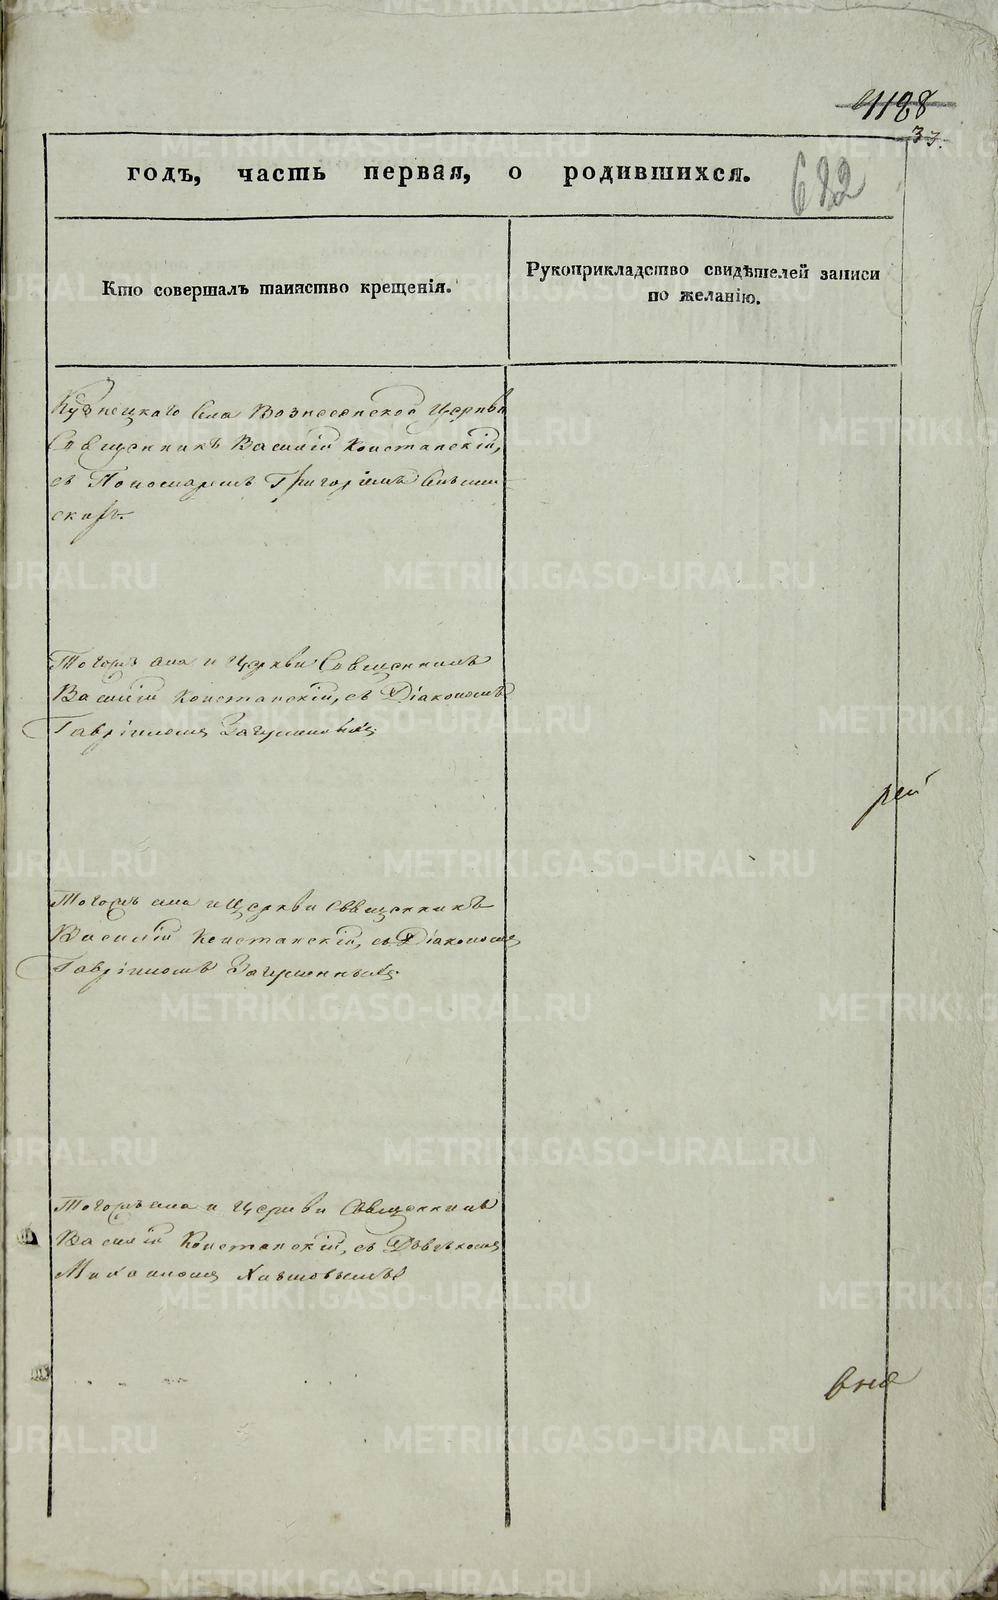 1128
33.
годъ, часть первая, о родившихся.
682
Кто совершалъ таинство крещенія.
Рукоприкладство свидѣтелей записи
по желанію.
Кузнецкаго Села Вознесенской Церкви
Священникъ Василій Констанскій,
съ Пономаремъ Григоріемъ
Тогожъ села и Церкви Священникъ
Василій Констанскій, съ Діакономъ
Гавріиломъ
Тогожъ села и Церкви Священникъ
Василій Констанскій, съ Діакономъ
Гавріиломъ Загуменныхъ
Тогожъ села и Церкви Священникъ
Василій Констанскій, съ Дьячкомъ
Михаиломъ
рей
METRIKI.GASO-URAL.RU